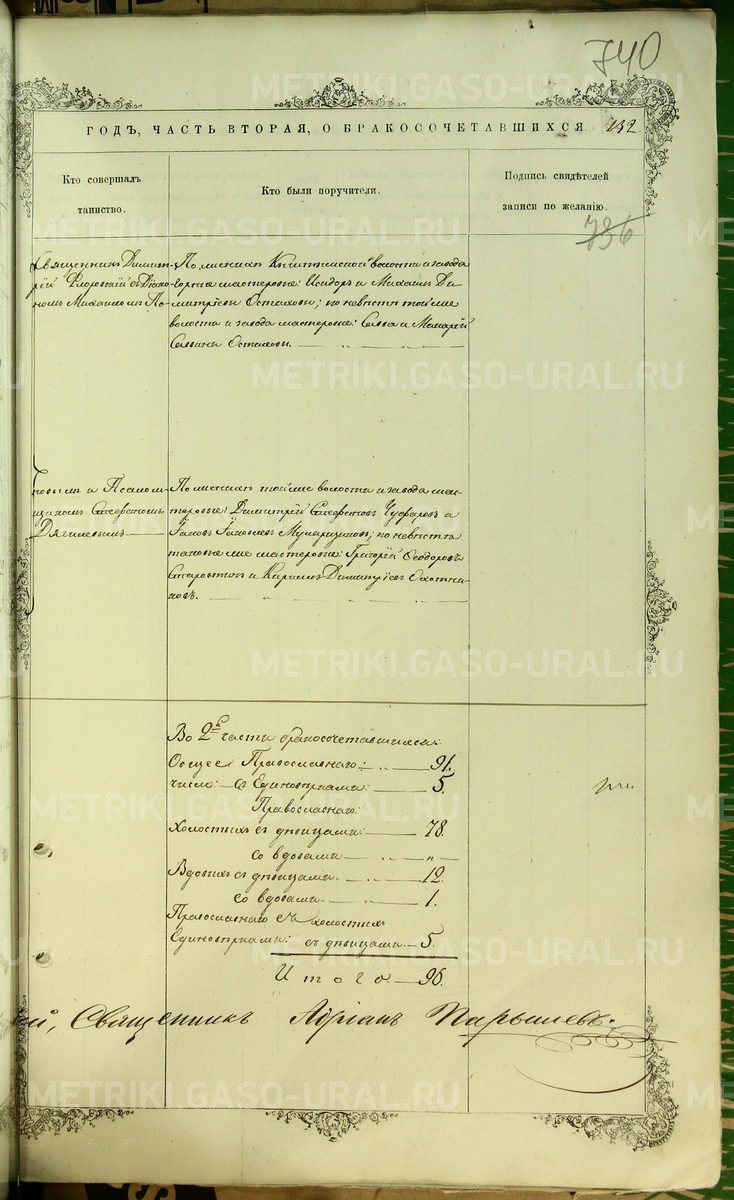 740
ГОДЪ, ЧАСТЬ ВТОРАЯ, О БРАКОСОЧЕТАВШИХСЯ 132.
Кто совершалъ
таинство.
Кто были поручители.
Подпись свидѣтелей
записи по желанію.
736
Священникъ Димит-
рій Флоровскій съ Діако-
номъ Михаиломъ По-
По женихѣ Кыштымской волости и завода
мастеровые: Исидоръ и Михаилъ Ди-
митріевы Осталовы; по невѣстѣ той же
волости и завода мастеровые: Савва и Макарій
Саввины Осталовы.
повымъ и Псалом-
щикомъ Стефаномъ
Дягилевымъ
По женихѣ той же волости и завода мас-
теровые: Димитрій Стефановъ Чуфаровъ и
Яковъ Яковлевъ; по невѣстѣ
таковые же мастеровые: Григорій Ѳеодоровъ
Старостинъ и Карпъ Димитріевъ Охотни-
ковъ.
Во 2й части бракосочетавшихся:
Общее Православнаго: 91.
число: съ Единовѣрцами: 5.
Православнаго:
Холостыхъ съ дѣвицами: 78.
со вдовами " 
Вдовыхъ съ дѣвицами 12
со вдовами 1.
Православнаго съ холостыхъ
Единовѣрцами: съ дѣвицами 5.
Итого 96.
Священникъ Адріанъ Парышевъ.
METRIKI.GASO-URAL.RU
METRIKI.GASO-URAL.RU
METRIKI.GASO-URAL.RU
METRIKI.GASO-URAL.RU
METRIKI.GASO-URAL.RU